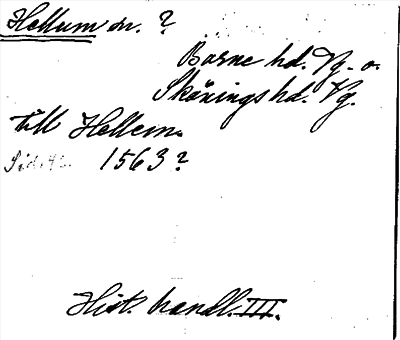 Hellum sn. ?
Barne hd. Vg. o.
Skånings hd. Vg.
till Hellem.
Sid. 46. 1563 ?
Hist. handl. III.